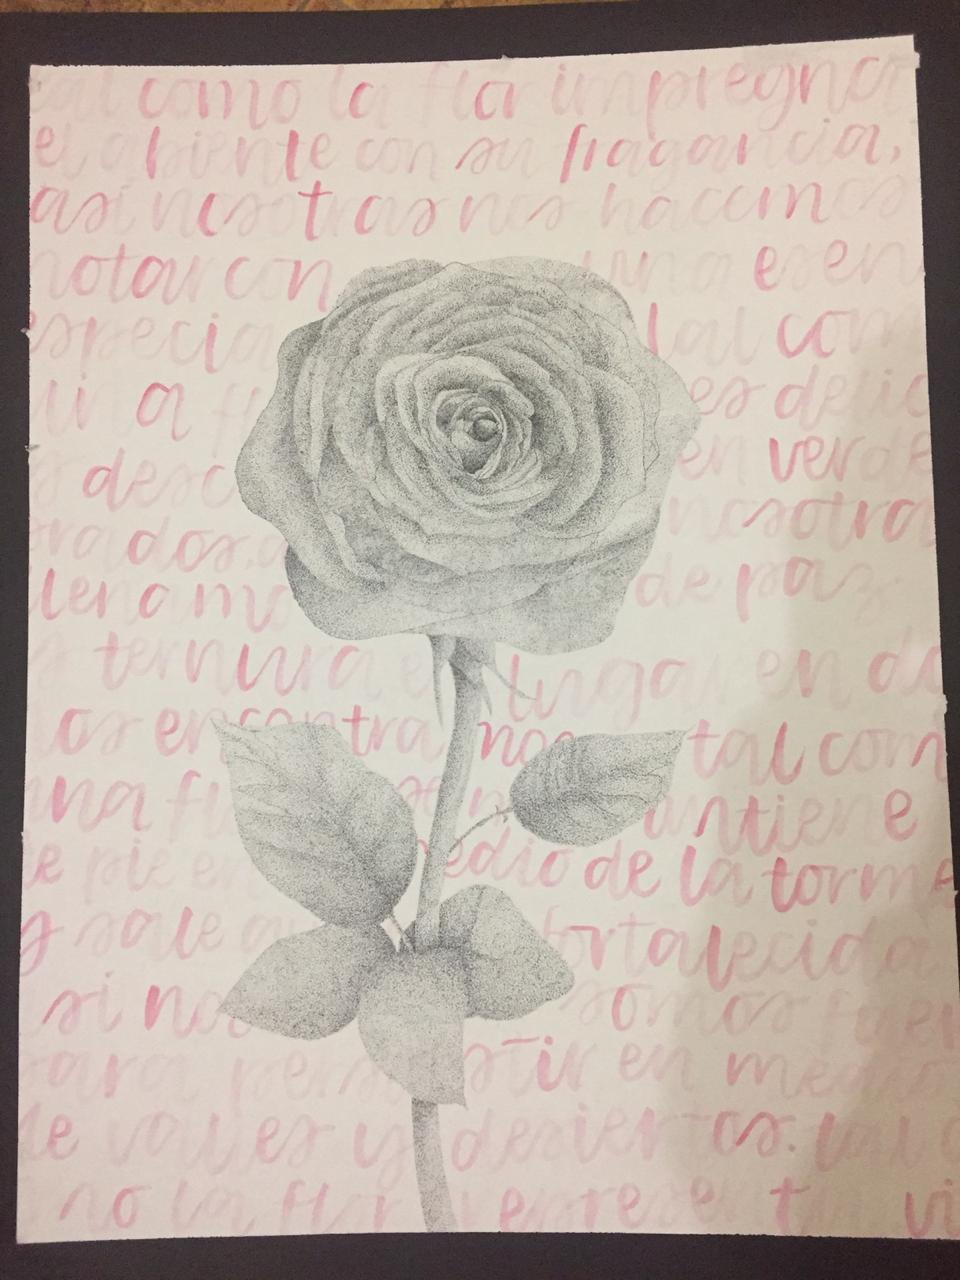 tal como la flor impregna
el abiente con su fragancia,
asi nosotras nos hacemos
notar con una esen
especial tal com
una es delic
desc en verde
rados. nosotra
llenamo de paz
y ternura el lugar en do
os encontramos tal com
una fl se mantiene
de pie en medio de la torme
y sale fortalecida
si no somos fuer
para persistir en medio
de valles y desiertos. tal
mo la flor representa vi